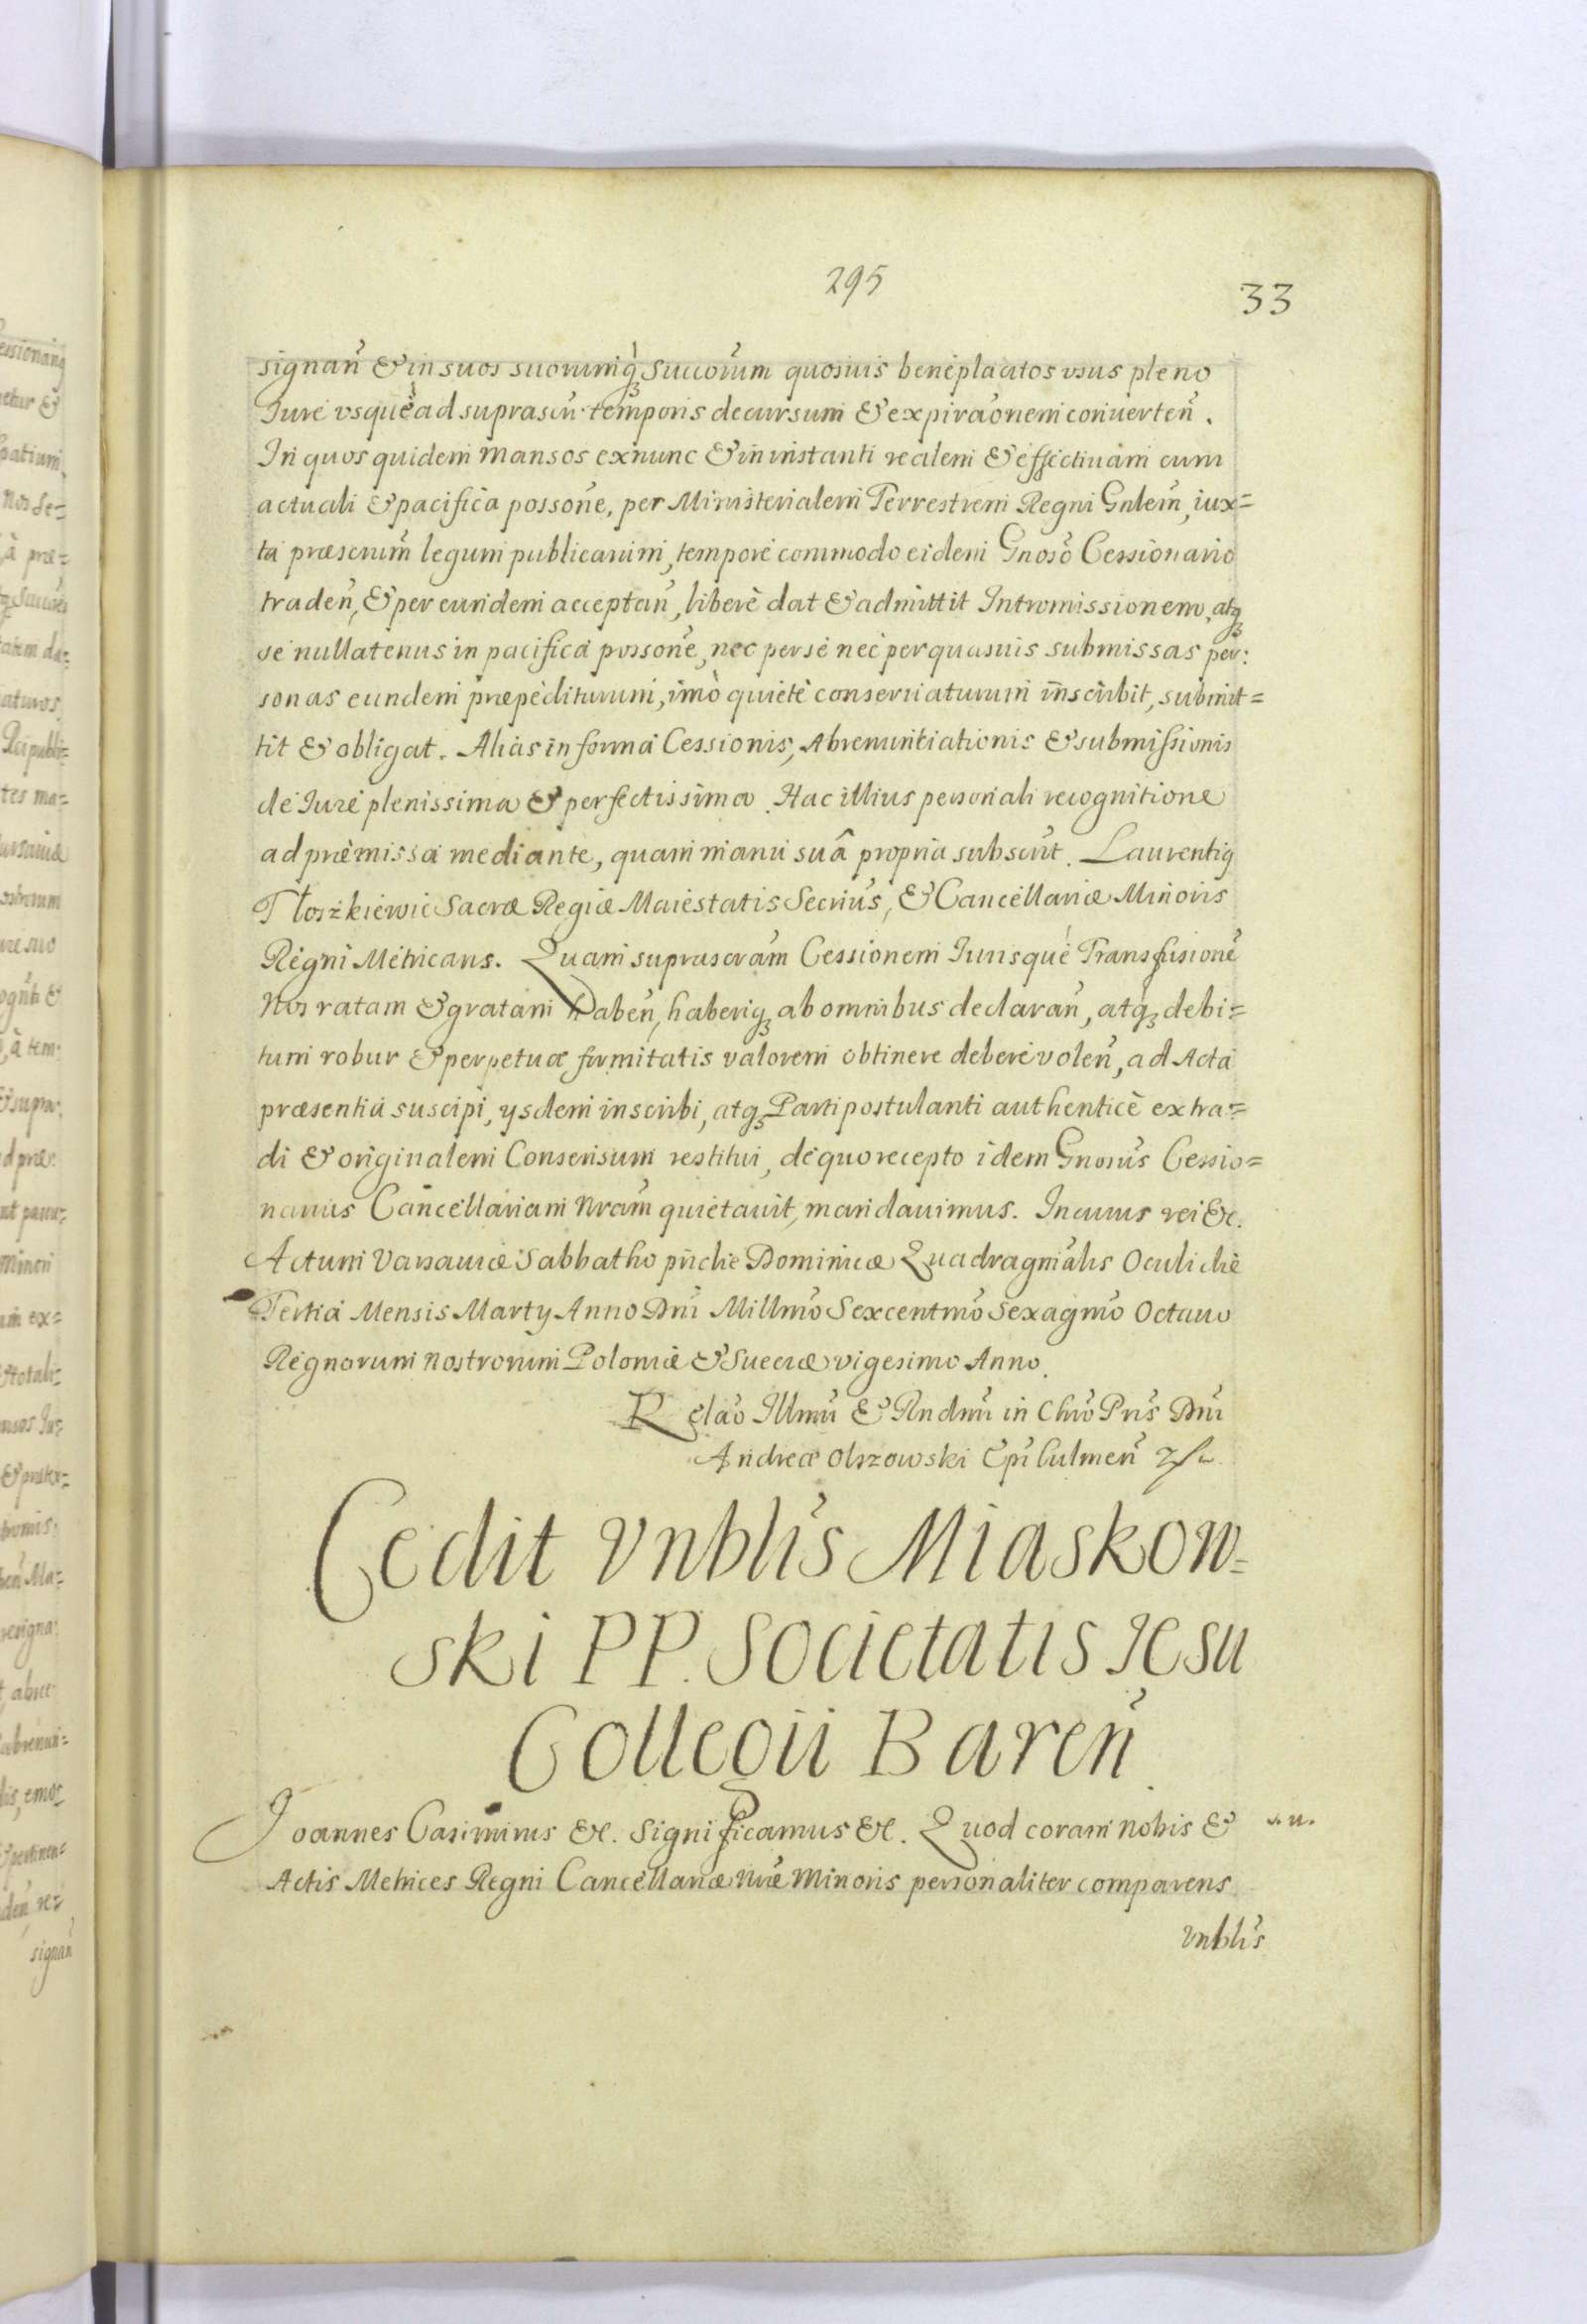 295
33
signan̄ & in suos suorumq́ꝫ Succōrum quosuis beneplacitos vsus pleno
Iure vsque ad suprascr̄: temporis decursum & expirāonem conuerten̄.
In quos quidem mansos exnunc & in instanti realem & effectiuam cum
actuali & pacifica possōne, per Ministerialem Terrestrem Regni Gnlem̄, iux=
ta praescrum̄ legum publicarum, tempore commodo eidem Gnosō Cessionario
traden̄, & per eundem acceptan̄, liberè dat & admittit Intromissionem, atqꝫ
se nullatenus in pacifica possōne, nec per se nec per quasuis submissas per:
sonas eundem praepediturum, imò quietè conseruaturum inscribit, submit=
tit & obligat. Alias in forma Cessionis, Abrenuntiationis & submissionis
de Iure plenissima & perfectissima. Hac illius personali recognitione
ad praemissa mediante, quam manu suâ propria subscrīt. Laurentiꝯ
Tłoszkiewic Sacrae Regiae Maiestatis Secriūs, & Cancellariae Minoris
Regni Metricans. Quam suprascrām Cessionem Iurisque Transfusionē
Nos ratam & gratam Haben̄, haberiqꝫ ab omnibus declaran̄, atqꝫ debi=
tum robur & perpetuae firmitatis valorem obtinere debere volen̄, ad Acta
praesentia suscipi, ysdem inscribi, atqꝫ Parti postulanti authenticè extra=
di & originalem Consensum restitui, de quo recepto idem Gnosūs Cessio=
narius Cancellariam Nrām quietauit, mandauimus. In cuius rei &c.
Actum Varsauiae Sabbatho pridie Dominicae Quadragmālis Oculi die
Tertia Mensis Marty Anno Dnī Millmō Sexcentmō Sexagmō Octauo
Regnorum nostrorum Poloniae & Sueciae vigesimo Anno.
Relāo Illmī & Rndmī in Chrō Pris̄ Dnī
Andreae Olszowski Epī Culmen̄
Cedit Vnblīs Miaskow=
ski PP. Societatis Iesu
Collegii Baren̄
Joannes Casimirus &c. Significamus &c. Quod coram nobis &
Actis Metrices Regni Cancellariae Nrae Minoris personaliter comparens
Vnblīs